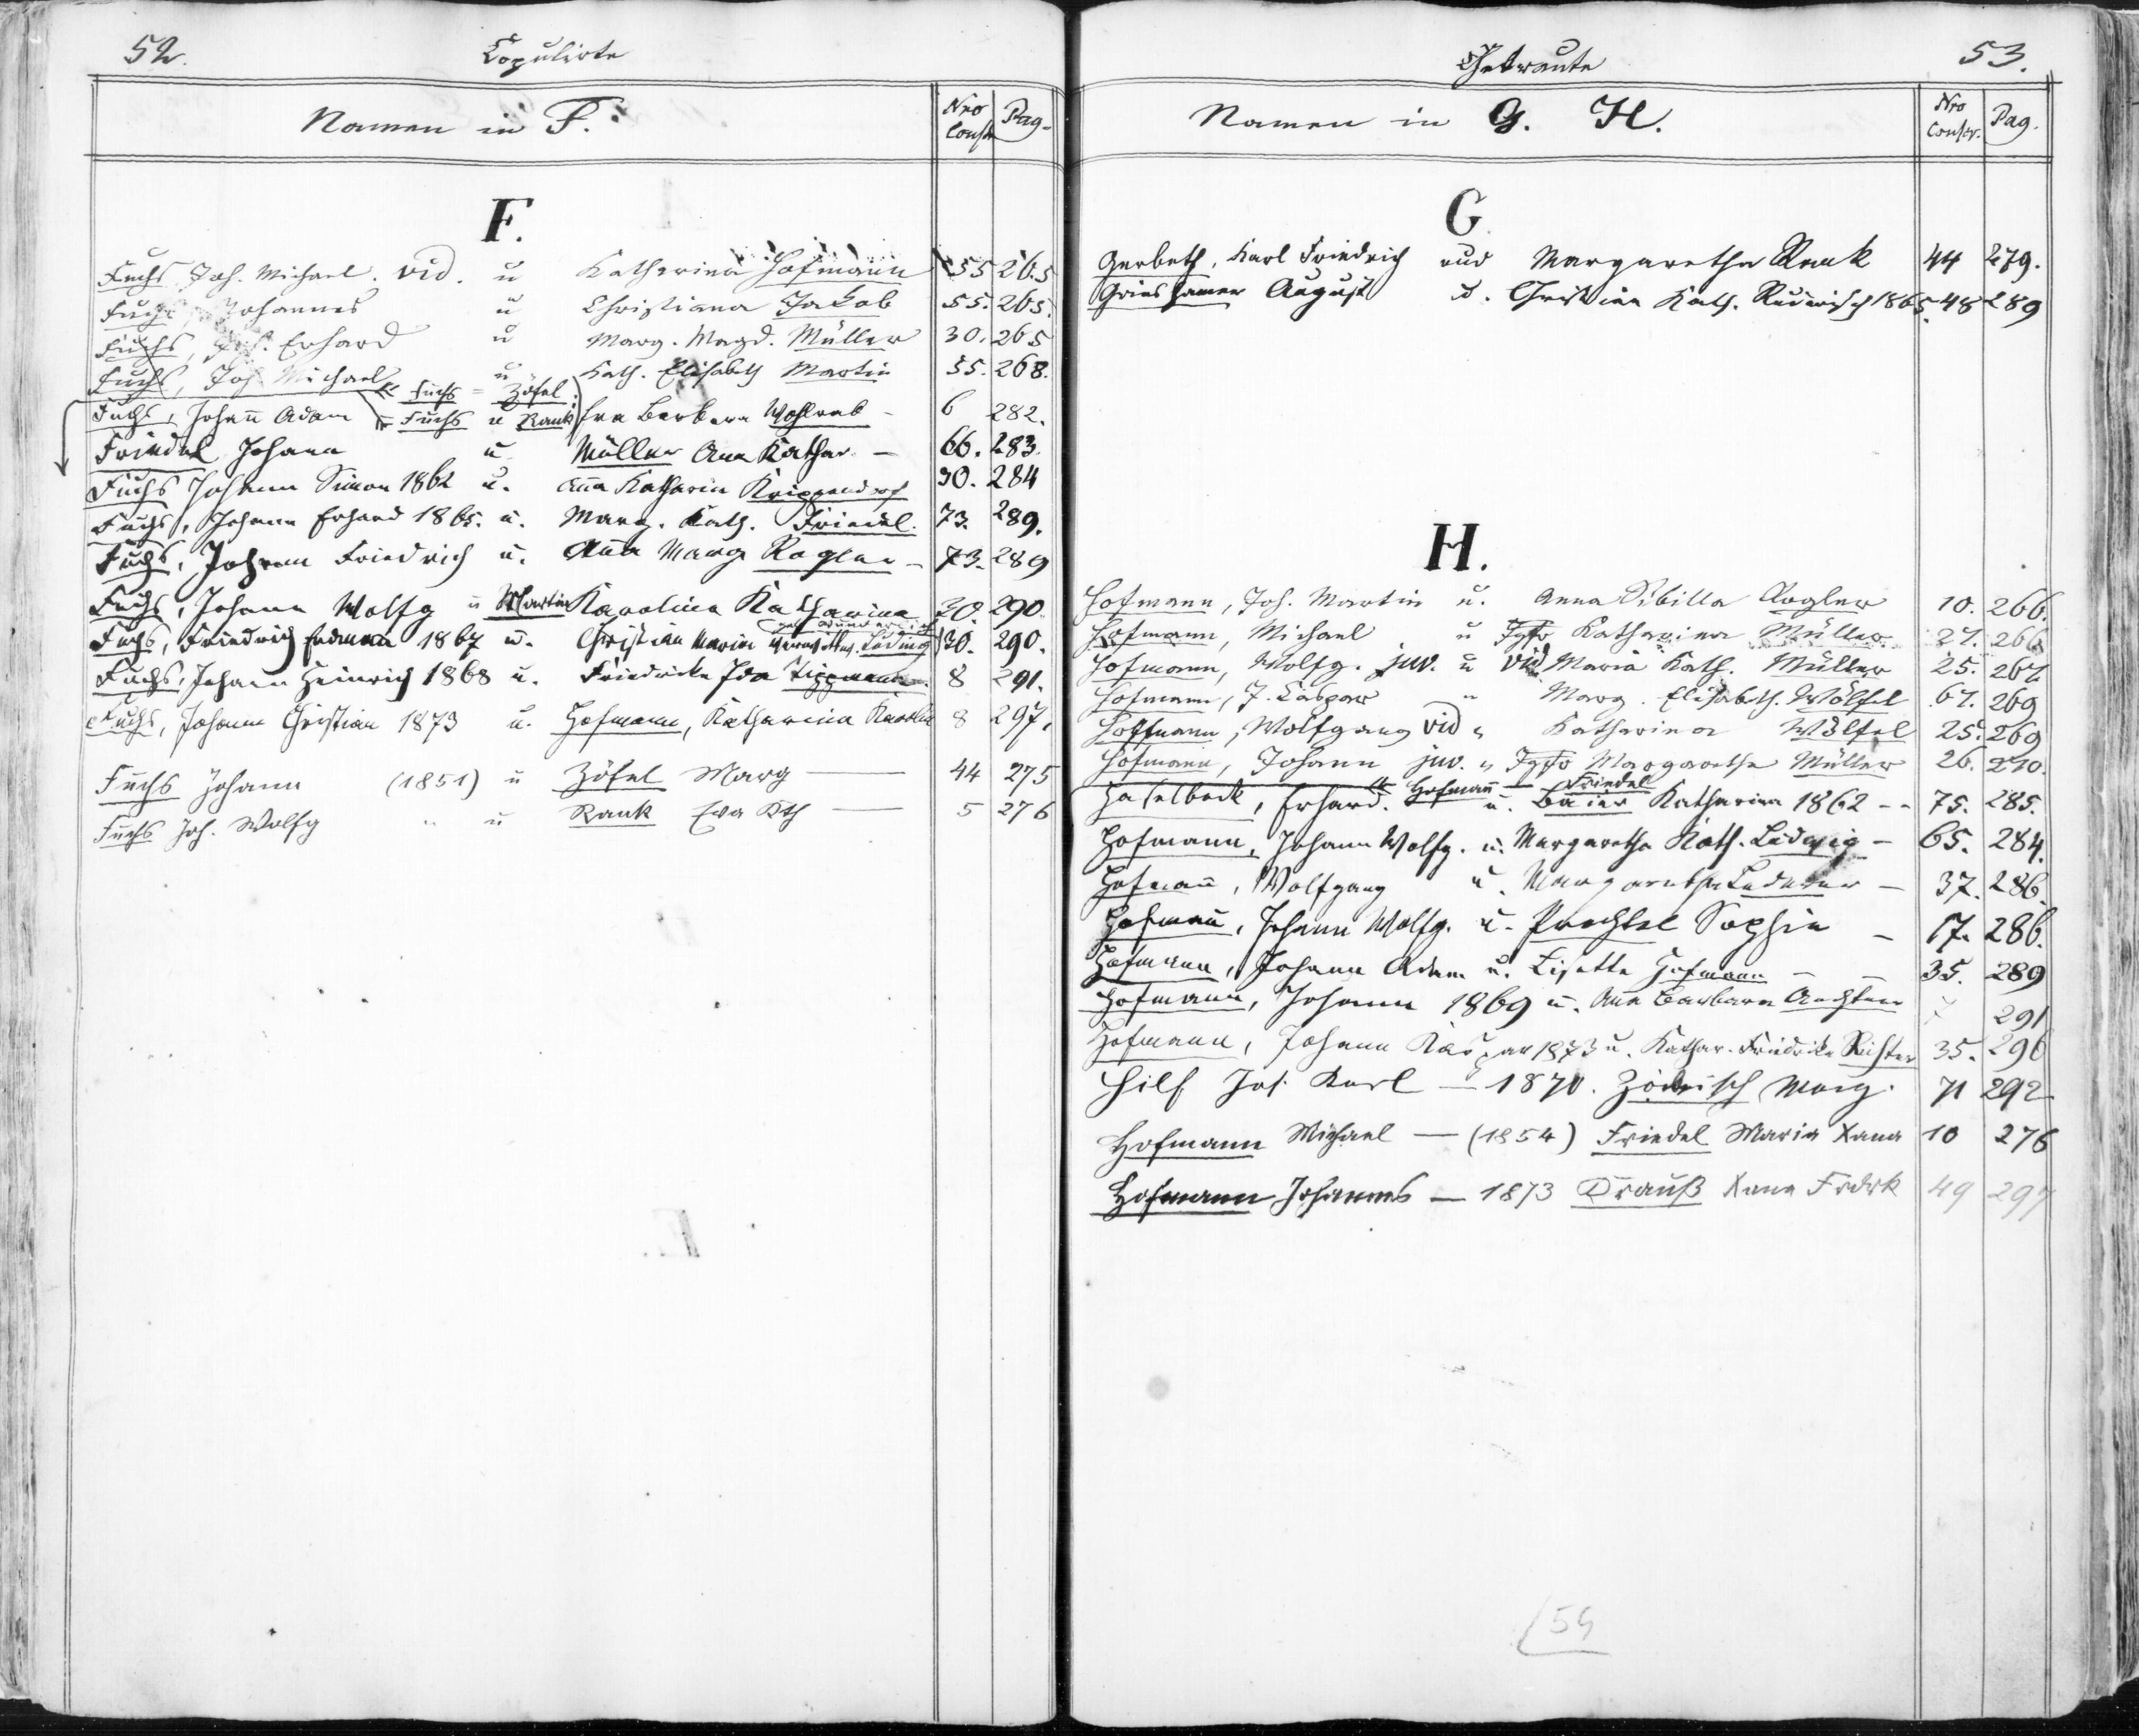 52. Copulirte
Namen in F. Nro Conscr. Pag.
F.
Fuchs Joh. Michael. vid. u Katharina Hofmann 55 265
Fuchs Johannes u Christiana Jakob 55. 265.
Fuchs, Joh. Erhard u Marg. Magd. Müller 30. 265
Fuchs, Joh. Michael u Kath. Elisabeth Martin 55. 268.
Fuchs = Zöfel
Fuchs, Johañ Adam Fuchs u Rank Eva Barbara Wohlrab - 6 282.
Friedel Johann u Müller Ana Kathar. - 66. 283.
Fuchs Johann Simon 1862 u. Aña Katharin Krippendorf 30. 284
Fuchs, Johann Erhard 1865. u. Marg. Kath. Friedel. 73. 289.
Fuchs, Johann Friedrich u. Aña Marg Rogler - 73. 289
Fuchs, Johann Wolfg u Martin Karolina Katharina 20. 290.
Fuchs, Friedrich Erdmann 1867 u. Christian Maria 30. 290.
Fuchs, Johann Heinrich 1868 u. Friedricke Ida Tippmann. 8 291.
Fuchs, Johann Christian 1873 u. Hofmann, Katharina 8 297.
Fuchs Johann (1851) u Zöfel Marg — 44 275
Fuchs Joh. Wolfg " u Rank Eva Kth — 5 276
Getraute 53.
Namen in G. H. Nro Conscr. Pag.
G
Gerbeth, Karl Friedrich und Margaretha Rank 44 279.
Grieshamer August u. Christian Kath. 1865. 48 289
H.
Hofmann, Joh. Martin u. Anna Sibilla Rogler 10. 266.
Hofmann, Michael u Jgfr Katharina Müller. 27. 266
Hofmann, Wolfg. juv. u vid Maria Kath. Müller 25. 267.
Hofmann, J. Caspar " Marg. Elisabeth. Wölfel 67. 269
Hoffmann, Wolfgang vid " Katharina Wölfel 25. 269
Hofmann, Johann juv. " Jgfr Margaretha Müller 26. 270.
Hofmañ — Friedel
Haselbeck, Erhard. u. Baier Katharina 1862 -- 75. 285.
Hofmann, Johann Wolfg. u. Margaretha Kath. Ludwig - 65. 284.
Hofmañ, Wolfgang u. Margaretha Lederer - 37. 286.
Hofmañ, Johann Wolfg. u. Prechtel Sophie - 17. 286.
Hofmann, Johann Adam u. Lisette Hofmann - - 35. 289
Hofmann, Johann 1869 u. Aña Barbara 7 291
Hofmann, Johann Kaspar 1873 u. Kathar. Friedrike Richter 35. 296
Hilf Joh. Karl — 1870. Marg. 71 292
Hofmann Michael — (1854) Friedel Maria Xana 10 276
Hofmann Johannes — 1873 Drauß Xana Frdrk 49 297
54